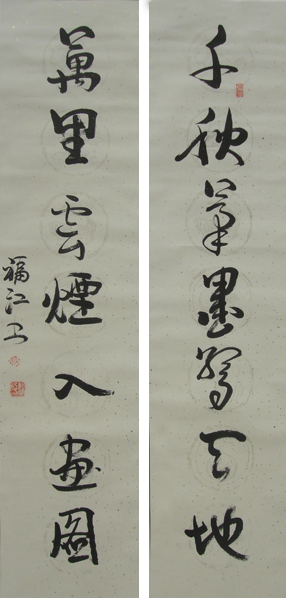 千秋筆墨驚天地
萬里雲煙入畫圖
福江书